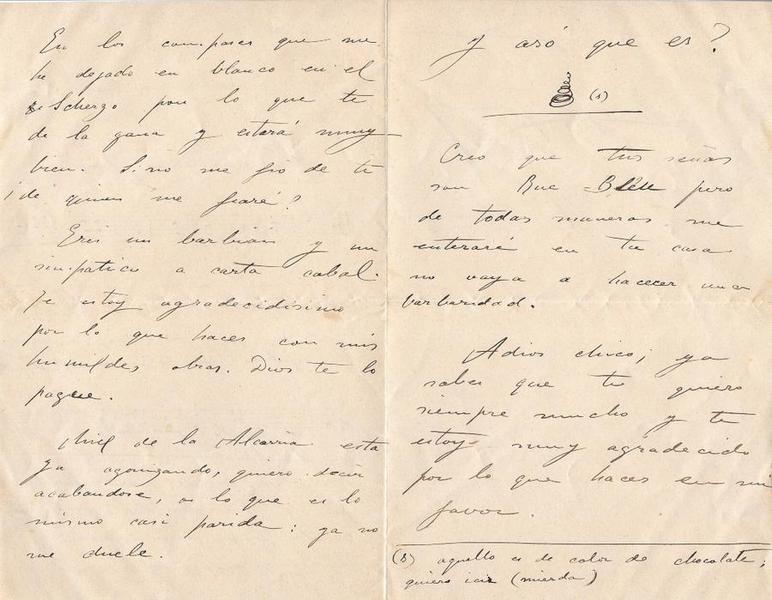 En los compases que me
he dejado en blanco en el
Scherzo pon lo que te
de la gana y estará muy
bien. Si no me fio de ti
¡de quien me fiaré?
Eres un barbian y un
simpatico a carta cabal.
Te estoy agradecidisimo
por lo que haces con mis
humildes obras. Dios te lo
pague.
Miel de la Alcarria esta
ya agonizando, quiero decir
acabandose, o lo que es lo
mismo casi parida: ya no
me duele.
Y asó que es?
(1)
Creo que tus señas
son Rue Blêue pero
de todas maneras me
enteraré en tu casa
no vaya a hacecer una
barbaridad.
Adios chico; ya
sabes que te quiero
siempre mucho y te
estoy muy agradecido
por lo que haces en mi
favor.
(1) aquello es de color de chocolate;
quiero (mierda)